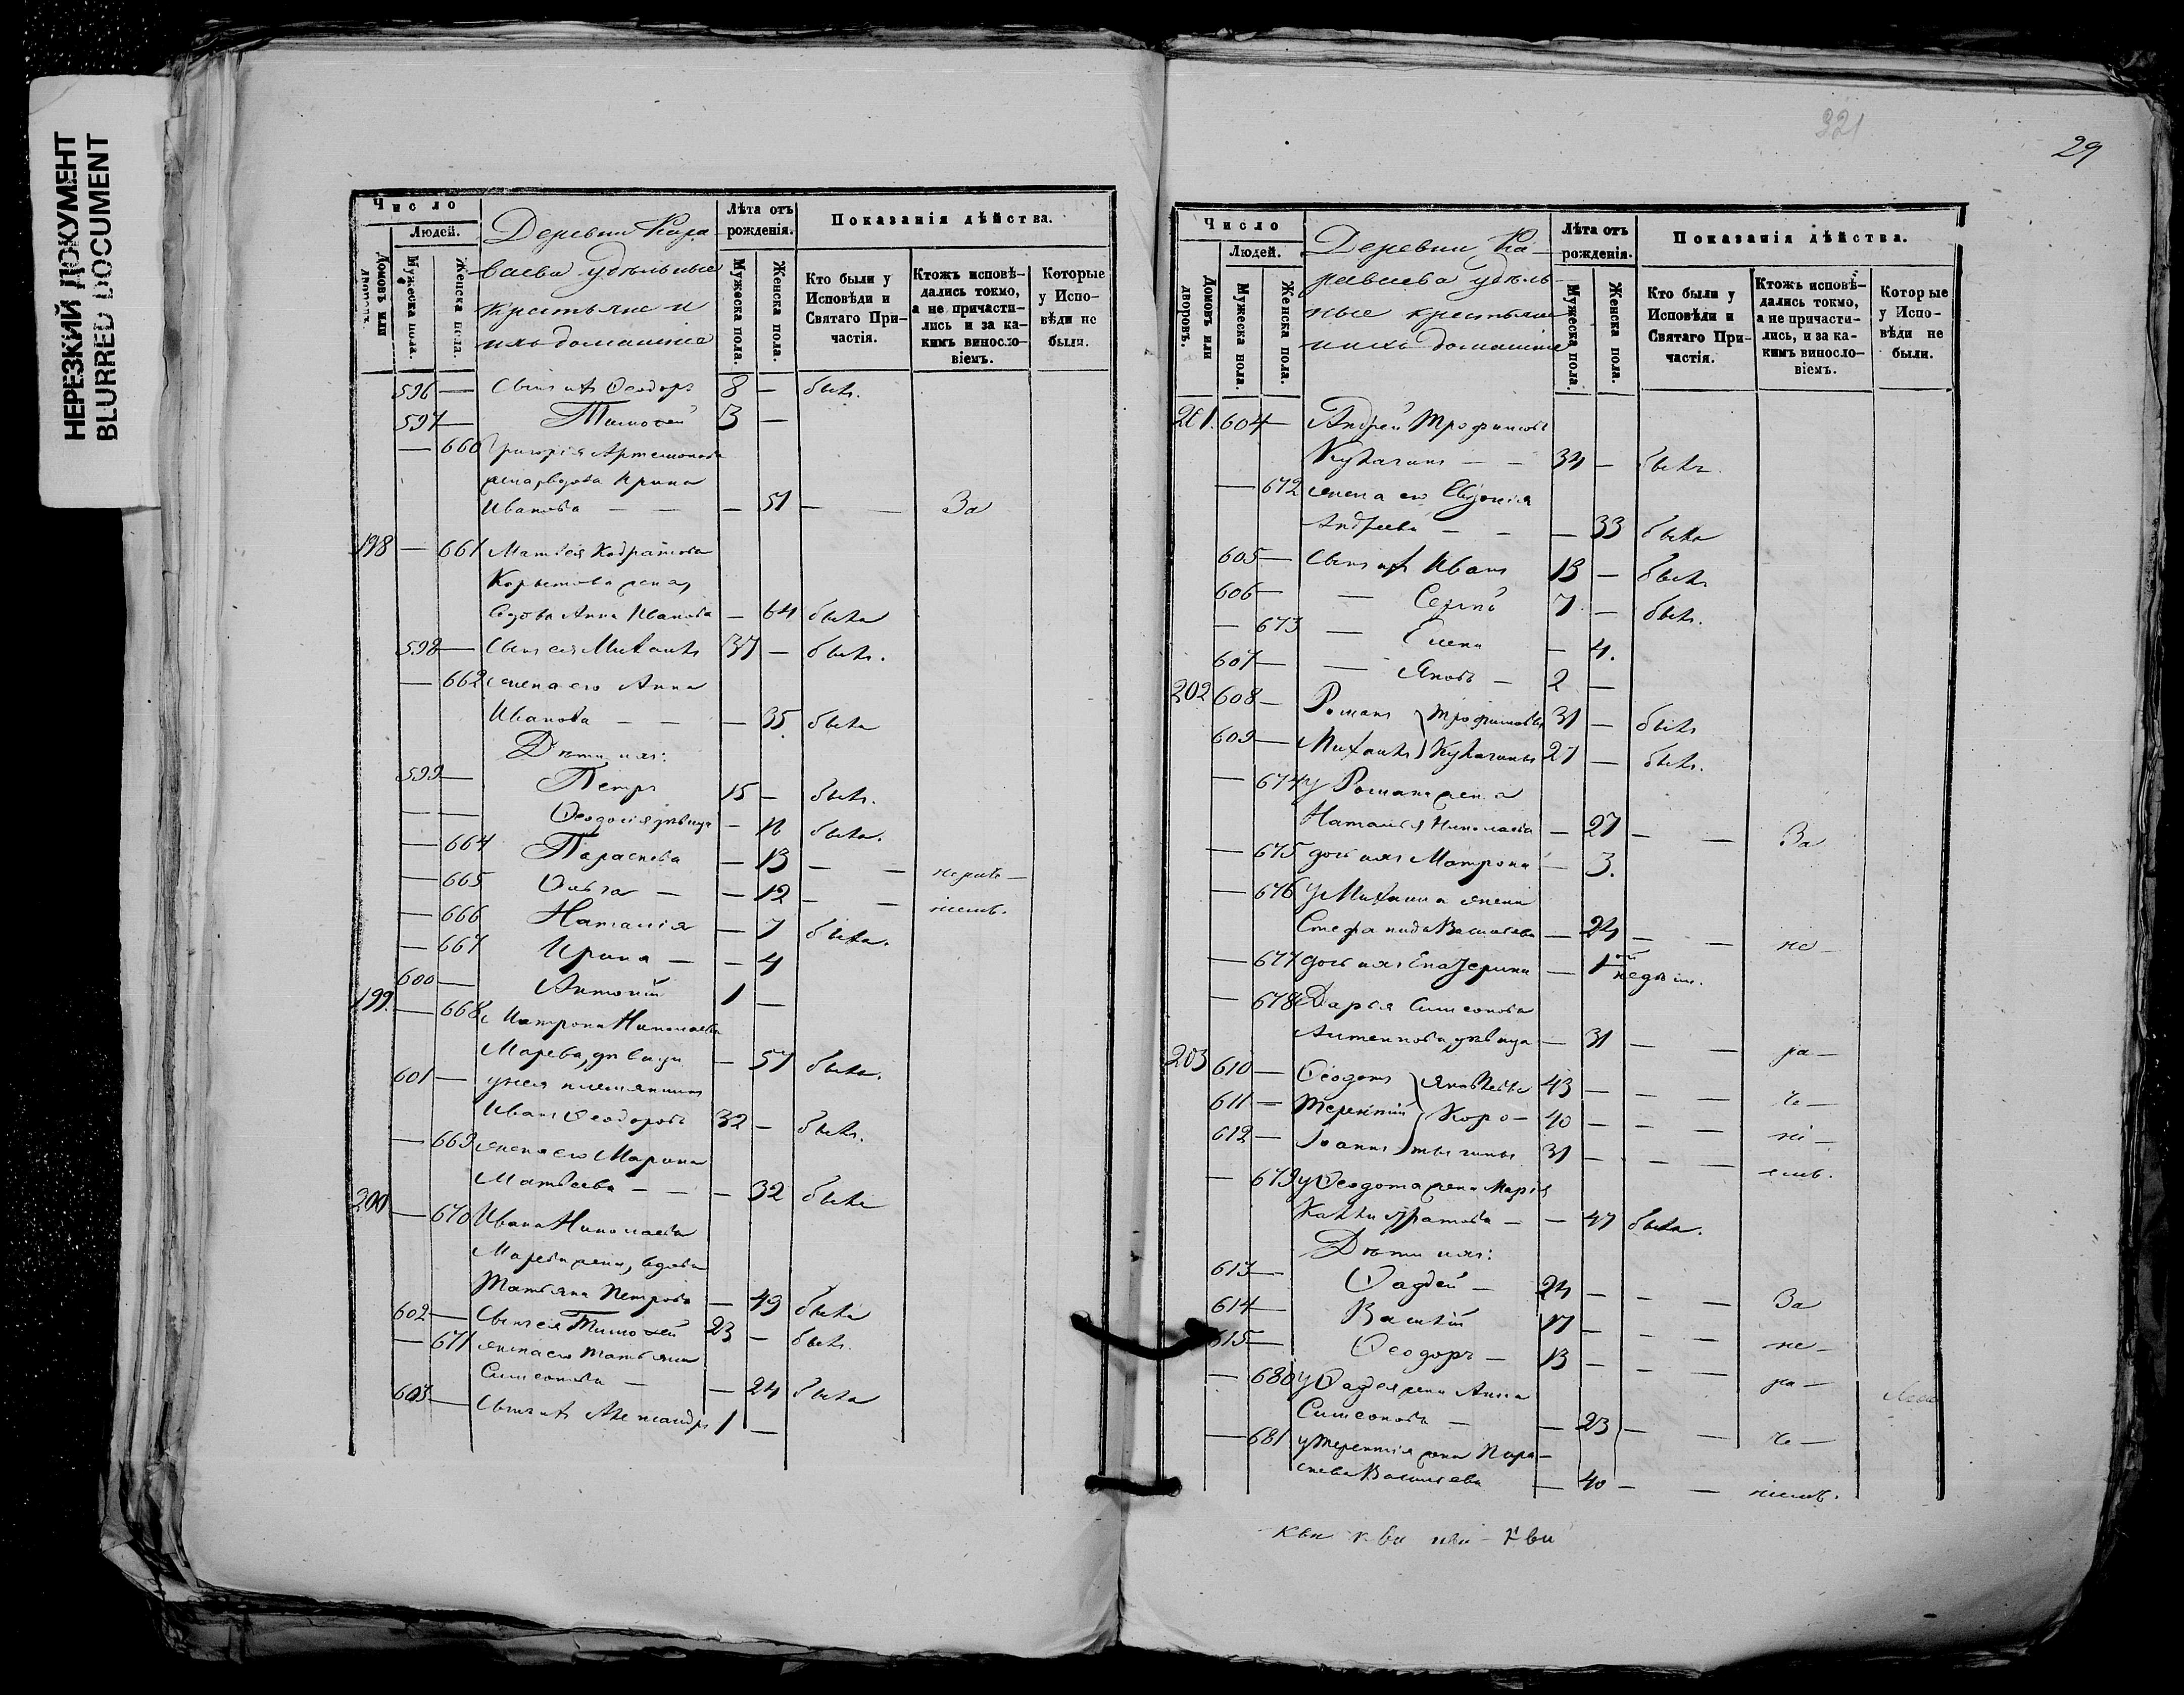 НЕРЕЗКИЙ ДОКУМЕНТ
BLURRED DOCUMENT
Число
Людей.
Домовъ или дворовъ.
Мужеска пола.
Женска пола.
Деревни Кара
ваева удѣльные
крестьяне и
ихъ домашніе
Лѣта отъ рожденія.
Мужеска пола.
Женска пола.
Показанія дѣйства.
Кто были у Исповѣди и Святаго Причастія.
Ктожъ исповѣдались токмо, а не причастились и за какимъ винословіемъ.
Которые у Исповѣди не были.
596 — Сынъ ихъ Ѳеодоръ 8 — былъ.
597 — Тимоѳей 3 —
— 660 Григорія Артемонова
жена, вдова Ирина
Иванова — — — 51 — — За
198 — 661 Матвѣя Кодратова
Корытова жена,
вдова Анна Иванова — 64 была
598 — Сынъ ея Михаилъ 37 — былъ.
— 662 жена его Анна
Иванова — — — 35 была
Дѣти ихъ:
599 — Петръ 15 — былъ.
— — Ѳеодосія дѣвица — 16 была.
— 664 Параскева — 13 — — нерадѣ—
— 665 Ольга — — 12 — — ніемъ.
— 666 Наталія — 7 была.
— 667 Ирина — — 4
600 — Антоній 1 —
199. — 668 Матрона Николаева
Марева, дѣвица — 57 была.
601 — у нея племянникъ
Иванъ Ѳеодоровъ 32 — былъ.
— 669 жена его Марина
Матвѣева — — — 32 была
200 — 670 Ивана Николаева
Марева жена, вдова
Татьяна Петрова — 49 была
602 — Сынъ ея Тимоѳей 23 — былъ.
— 671 жена его Татьяна
Симеонова — — 24 была
603 — Сынъ ихъ Александръ 1 —
321
29
Число
Людей.
Домовъ или дворовъ.
Мужеска пола.
Женска пола.
Деревни Ка-
раваева удѣль-
ные крестьяне
и ихъ домашніе
Лѣта отъ рожденія.
Мужеска пола.
Женска пола.
Показанія дѣйства.
Кто были у Исповѣди и Святаго Причастія.
Ктожъ исповѣдались токмо, а не причастились, и за какимъ винословіемъ.
Которые у Исповѣди не были.
201. 604 — Андрей Трофимовъ
— — 34 — былъ
— 672 жена его Евдокія
Андреева — — — 33 была
605 — Сынъ ихъ Иванъ 13 — былъ
606 — — Сергѣй 7 — былъ.
— 673 — Елена — 4.
607 — — Яковъ — 2 —
202 608 — Романъ Трофимовы 31 — былъ
609 — Михаилъ 27 — былъ.
— 674 у Романа жена
Наталья Николаева — 27 — — За
— 675 дочь ихъ Матрона — 3.
— 676 у Михаила жена
Стефанида Васильева — 24 — — не —
— 677 дочь ихъ Екатерина — 1 недѣли.
— 678 Дарья Симеонова
дѣвица — 31 — — ра —
203 610 — Ѳеодотъ Яковлевы 43 — — — че —
611 — Терентій Коро— 40 — — — ні —
612 — Іоаннъ тыгины 31 — — — емъ.
— 679 у Ѳеодота жена Марія
Каллистратова — — 47 была.
Дѣти ихъ:
613 — Ѳаддей — 24 — — — За
614 — Василій 17 — — — не —
615 — Ѳеодоръ — 13 — — — ра —
— 680 у Ѳаддея жена Анна
Симеонова — — 23 — — че —
— 681 у Терентія жена Пара—
скева Васильева — 40 — — ніемъ.